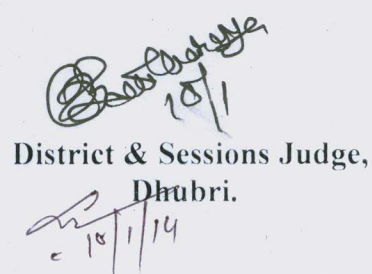 10/1
District & Sessions Judge,
Dhubri.
10/1/14